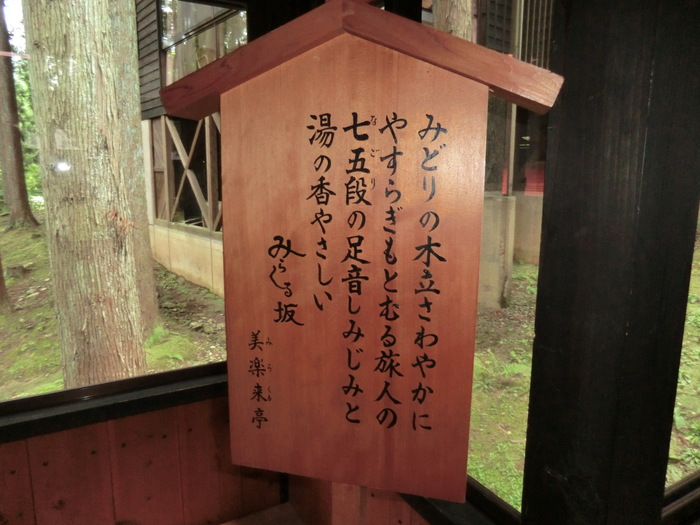 みどりの木立さわやかに
やすらぎもとむる旅人の
七五段の足音しみじみと
なごり
湯の香やさしい
みらくる坂
美楽来亭
みらくる